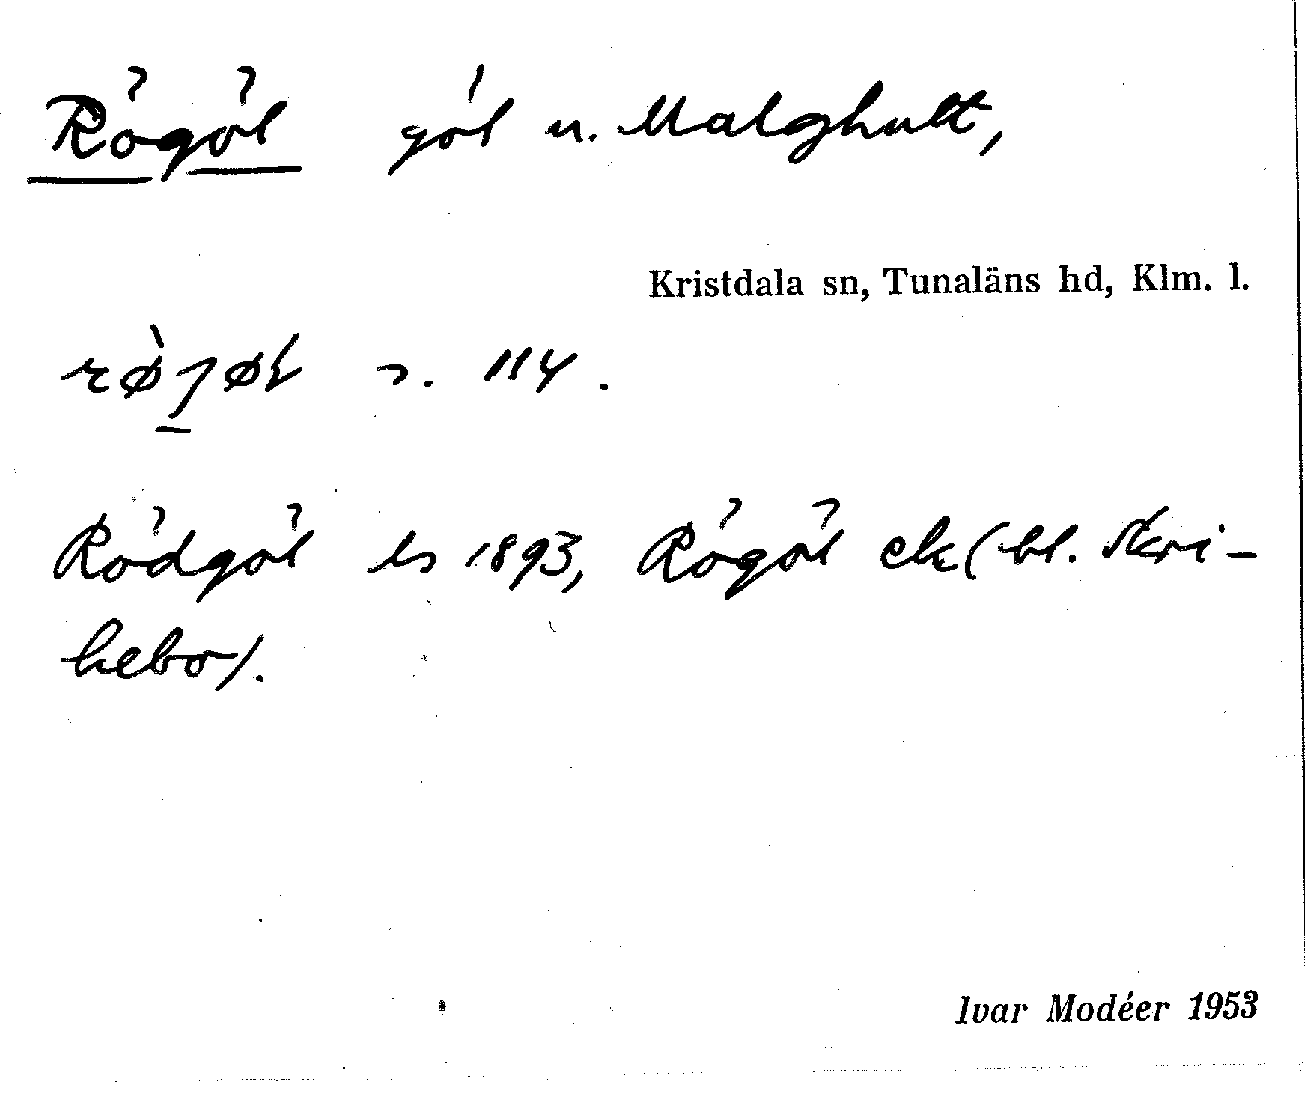 Rögöl göl n. Malghult,
Kristdala sn, Tunaläns hd, Klm. l.
114.
Rödgöl ls 1893, Rögöl ek (bl. Kri-
kebo).
Ivar Modéer 1953